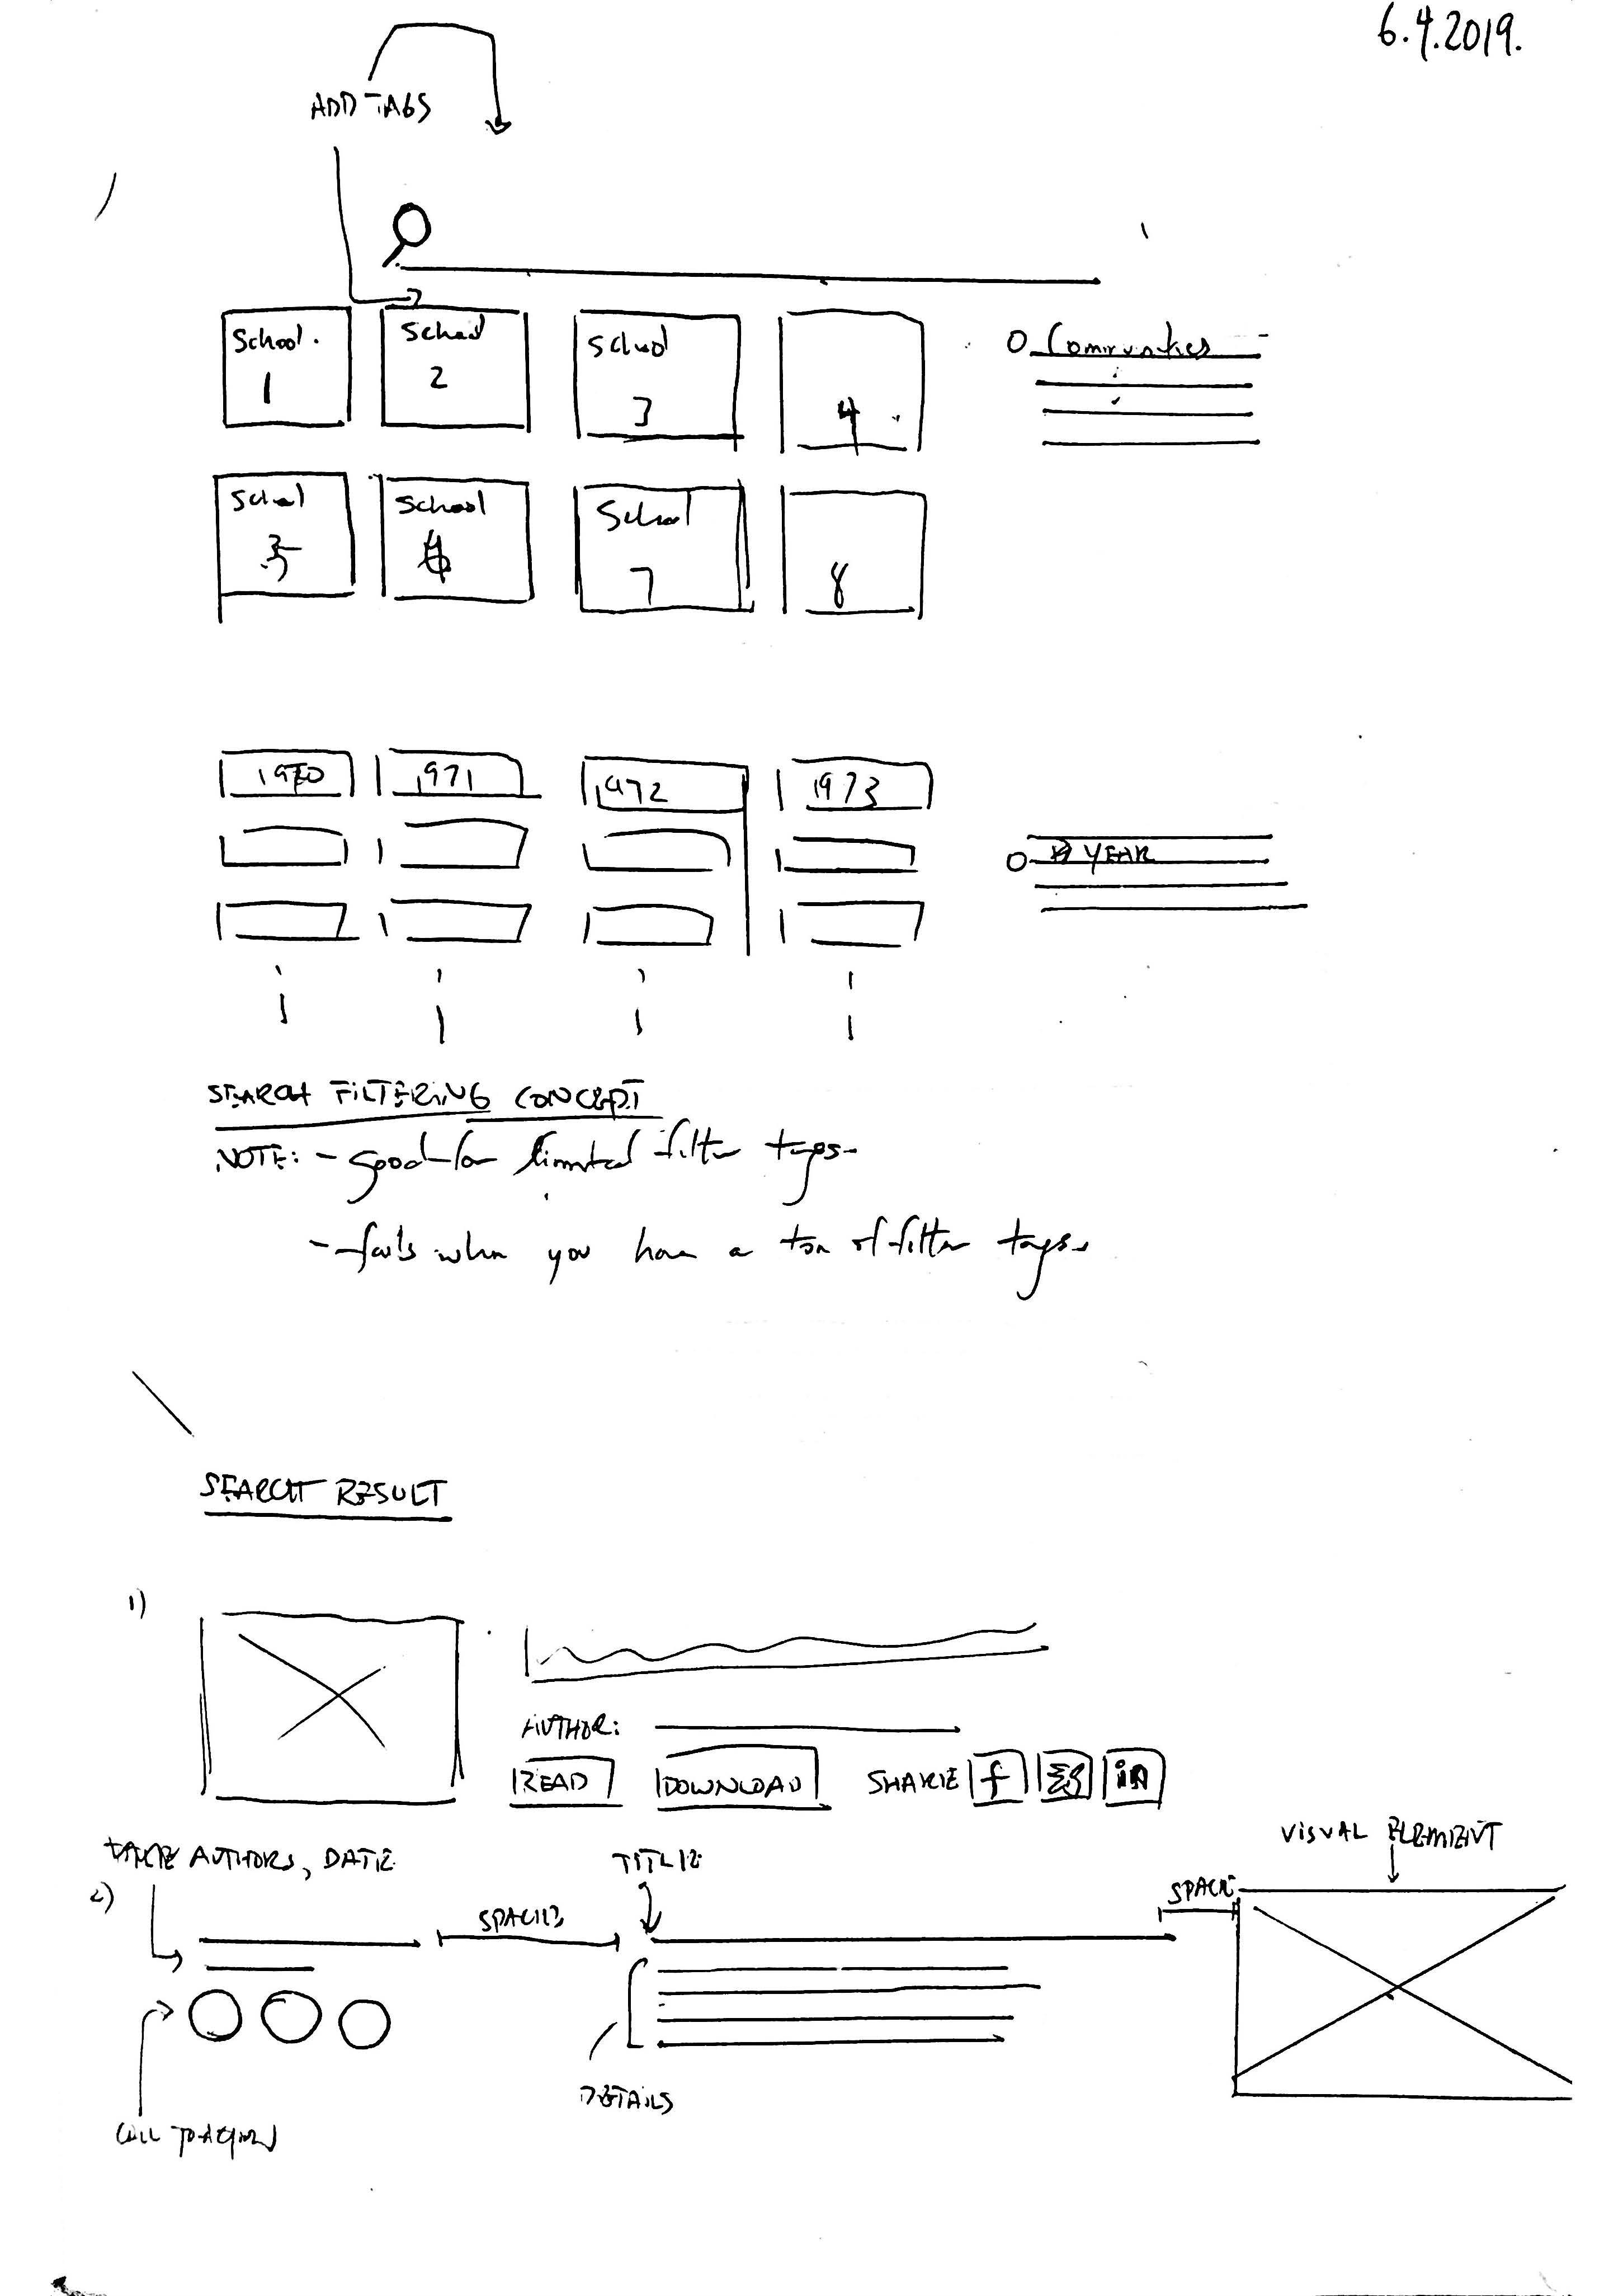 6.4.2019.
ADD TAGS
School.
1
School
2
School
3
4
Communities
School
5
School
6
School
7
8
1970
1971
1972
1973
YEAR
SEARCH FILTERING CONCEPT
NOTE: - good for limited filter tags.
- fails when you have a ton of filter tags.
SEARCH RESULT
1)
AUTHOR:
READ
DOWNLOAD
SHARE
f
in
VISUAL ELEMENT
AUTHORS, DATE
TITLE
SPACE
2)
SPACE
DETAILS
CALL TO ACTION